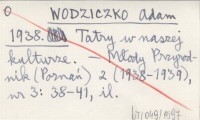 WODZICZKO Adam
1938. Tatry w naszej
kulturze. — Młody Przyrod-
nik (Poznań) 2 (1938-1939),
nr 3: 38-41, il.